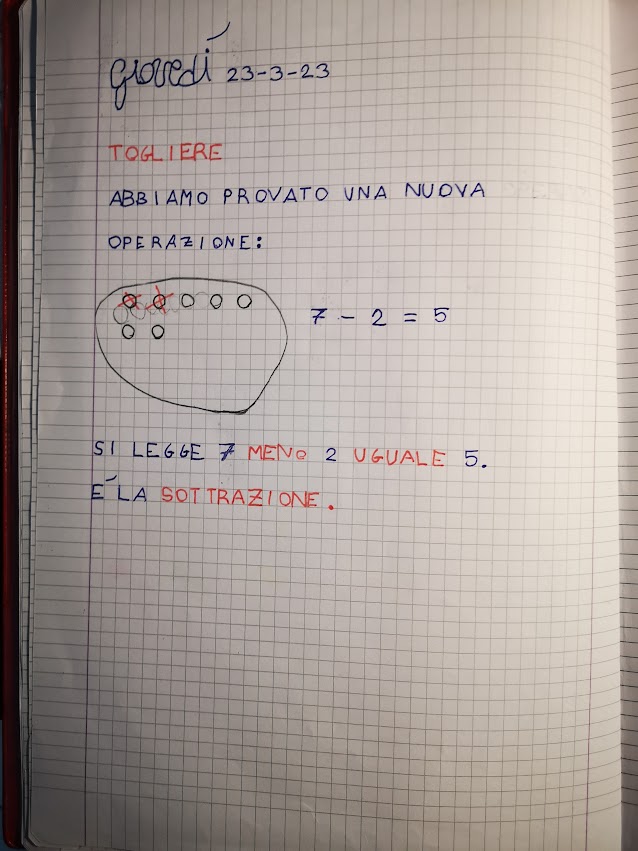 Giovedì 23-3-23
TOGLIERE
ABBIAMO PROVATO UNA NUOVA
OPERAZIONE:
7 - 2 = 5
SI LEGGE 7 MENO 2 UGUALE 5.
É LA SOTTRAZIONE.